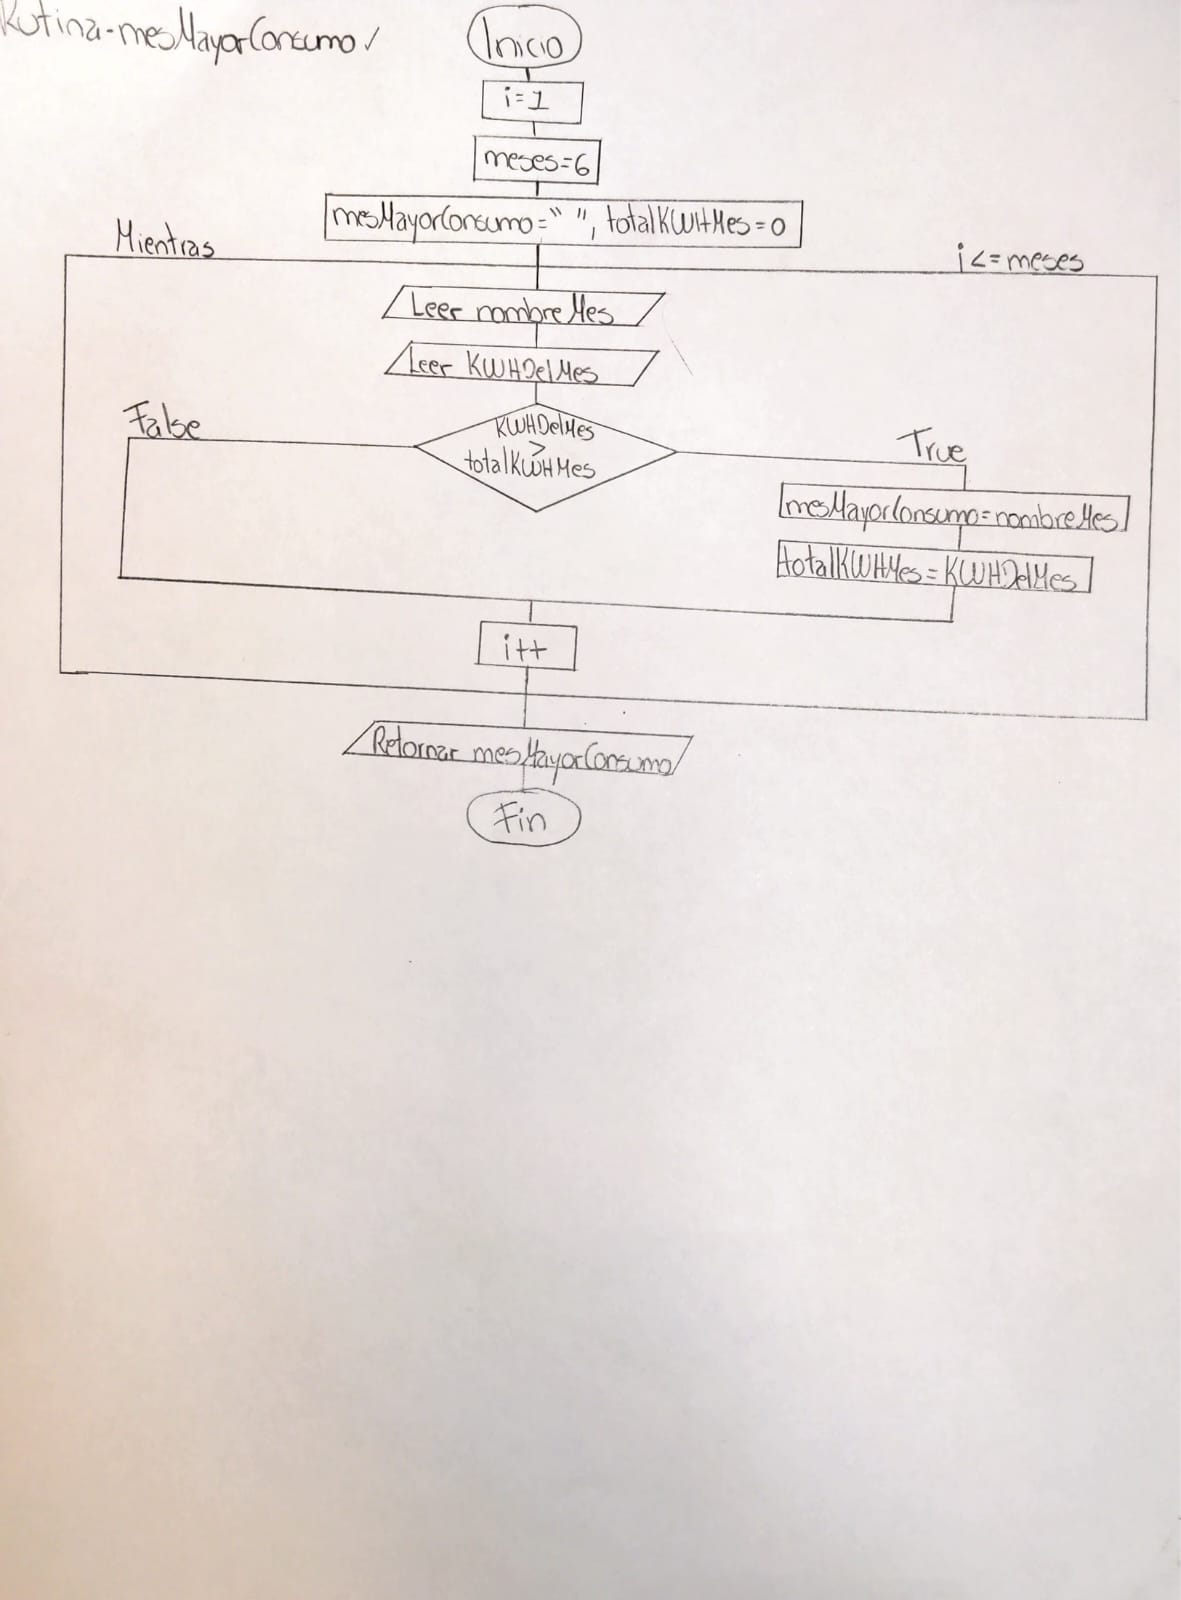 Rutina-mesMayorConsumo ✓
Inicio
i=1
meses=6
mesMayorConsumo=“ ”, totalKWHMes=0
Mientras
i<=meses
Leer nombreMes
Leer KWHDelMes
False
KWHDelMes
>
totalKWHMes
True
mesMayorConsumo=nombreMes
totalKWHMes=KWHDelMes
i++
Retornar mesMayorConsumo
Fin